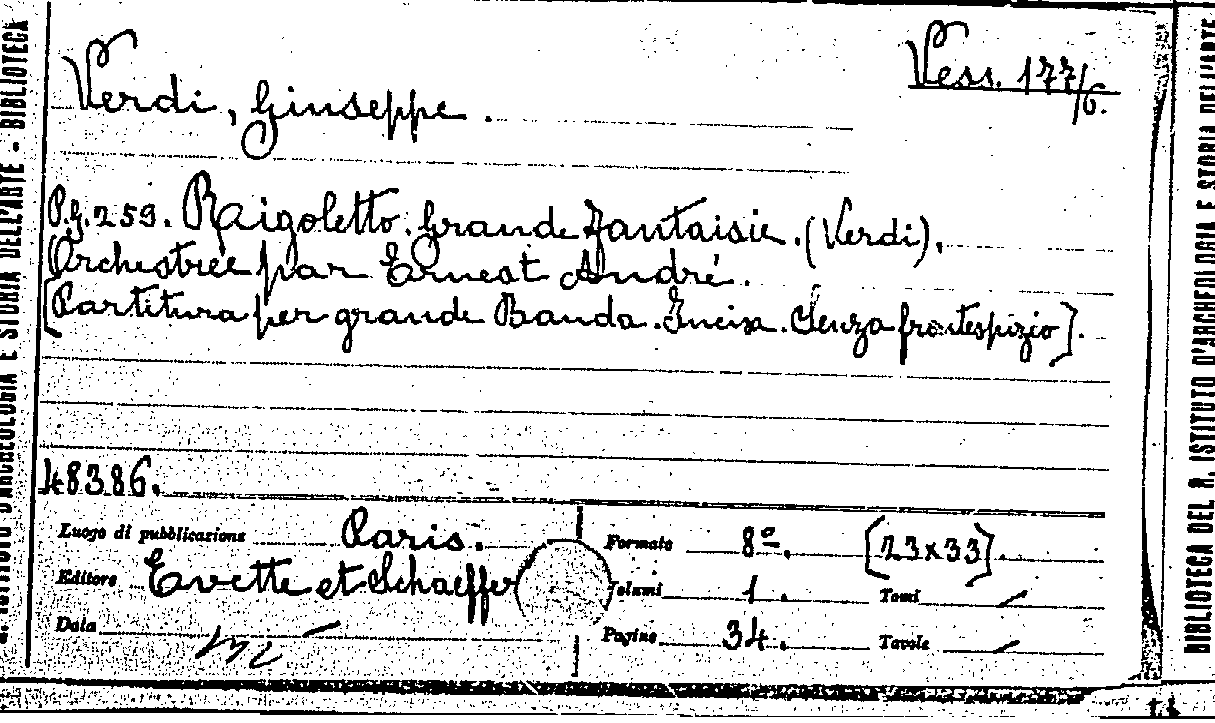 BIBLIOTECA DEL R. ISTITUTO D'ARCHEOLOGIA E STORIA DELL'ARTE
R. ISTITUTO D'ARCHEOLOGIA E STORIA DELL'ARTE - BIBLIOTECA
Vess. 177/6.
Verdi, Giuseppe.
P.g. 259. Raigoletto. Grande Fantaisie. (Verdi).
Orchestrée par Ernest André.
[Partitura per grande Banda. Incisa. Senza frontespizio].
48386.
Luogo di pubblicazione Paris.
Editore Evette et Schaeffer
Data /
mi
Formato 8º. [23x33].
Volumi 1. Tomi /
Pagine 34. Tavole /